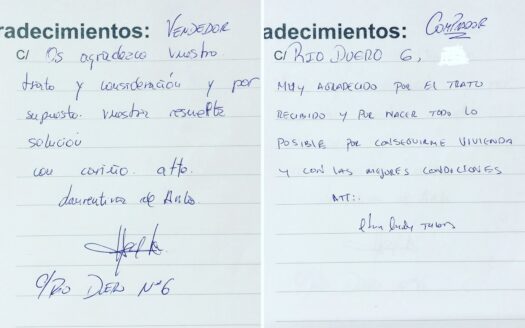 radecimientos: VENDEDOR
C/ Os agradezco vuestro
trato y consideración y por
supuesto. vuestra resuelta
solución
con cariño. atto.
Laurentina de
C/ Rio DUERO Nº 6
adecimientos: COMPRADOR
C/ RIO DUERO 6,
MUY AGRADECIDO POR EL TRATO
RECIBIDO Y POR HACER TODO LO
POSIBLE POR CONSEGUIRME VIVIENDA
Y CON LAS MEJORES CONDICIONES
ATT:.